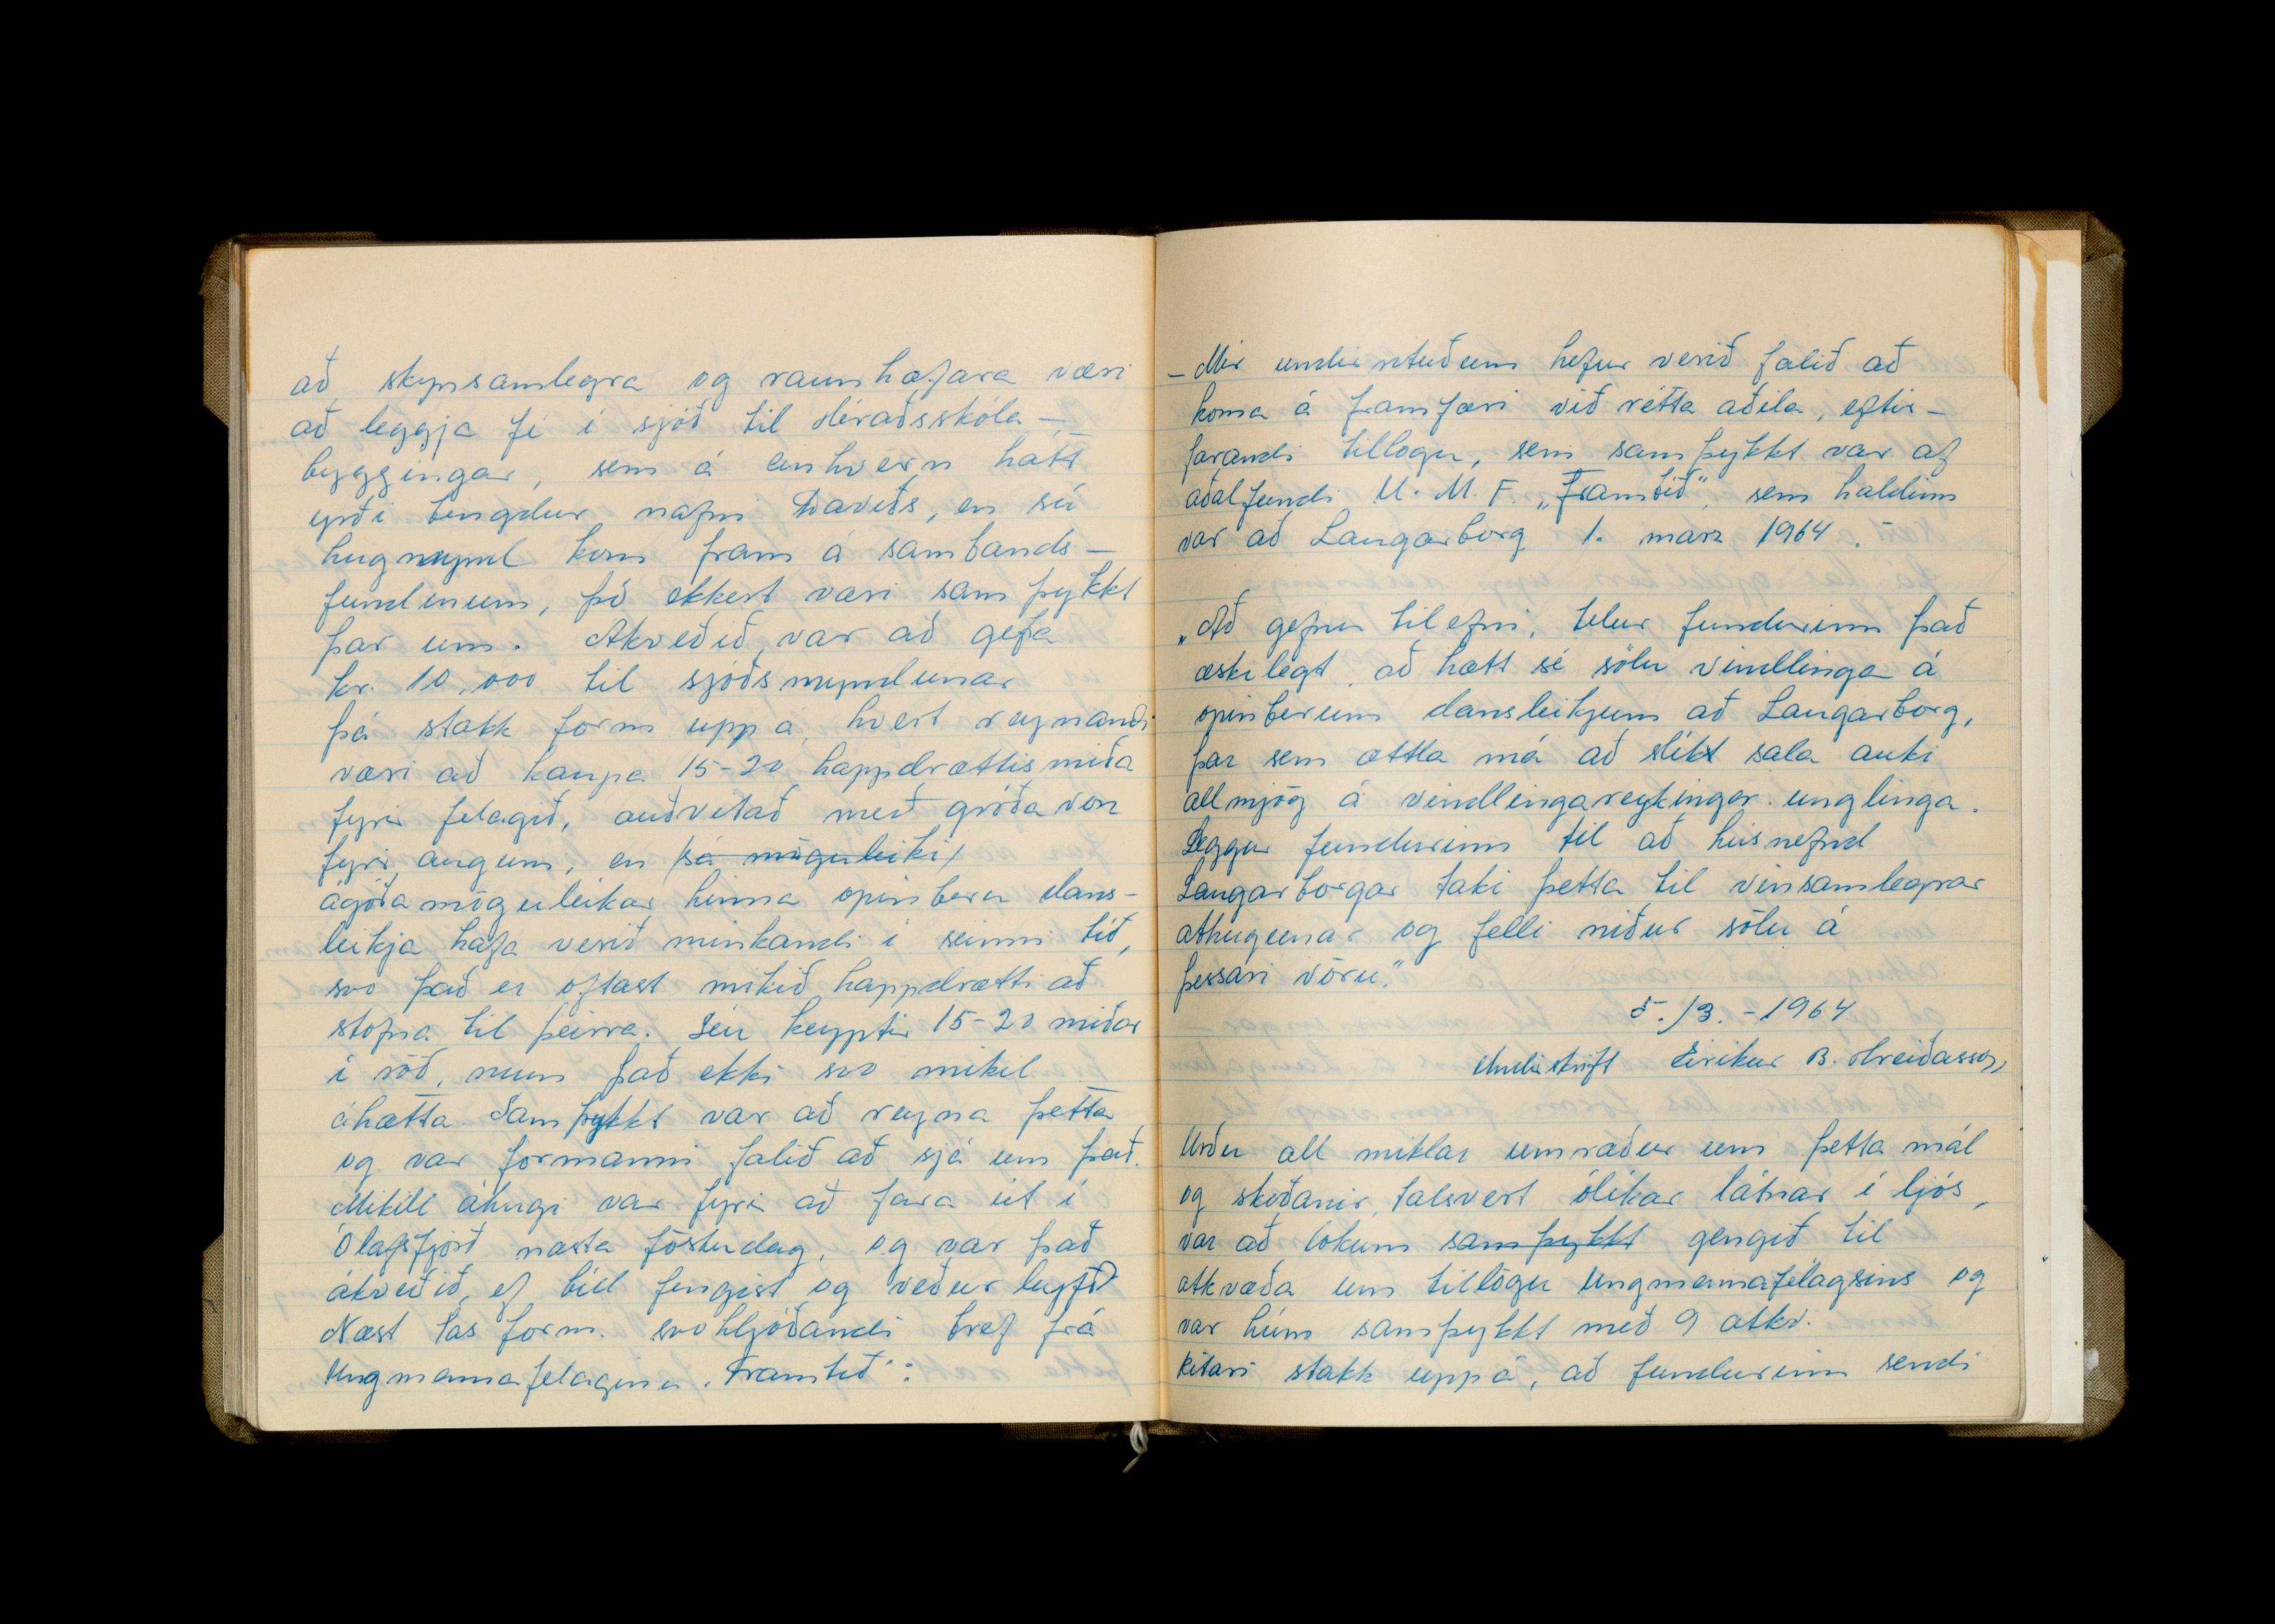 að skynsamlegra og raunhæfara væri
að leggja fé í sjóð til Héraðsskóla-
byggingar, sem á einhvern hátt
yrði tengdur nafni Davíðs, en sú
hugmynd kom fram á sambands-
fundinum, þó ekkert væri samþykkt
þar um. Ákveðið var að gefa
kr. 10.000 til sjóðsmyndunar
þá stakk form uppá, hvert reynandi
væri að kaupa 15-20 happdrættismiða
fyrir félagið, auðvitað með gróða von
fyrir augum, en (sá möguleiki)
ágóðamöguleikar hinna opinberu dans-
leikja hafa verið minkandi í seinni tíð,
svo það er oftast mikið happdrætti að
stofna til þeirra. Séu keyptir 15-20 miðar
í röð, mun það ekki svo mikil
áhætta. Samþykkt var að reyna þetta
og var formanni falið að sjá um það.
Mikill áhugi var fyrir að fara út í
Ólafsfjörð næsta föstudag, og var það
ákveðið, ef bíll fengist og veður leyfði
Næst las form. svohljóðandi bréf frá
Ungmannafélaginu "Framtíð":
- Mér undirrituðum hefur verið falið að
koma á framfæri við rétta aðila, eftir-
farandi tillögu, sem samþykkt var af
aðalfundi U.M.F. „Framtíð", sem haldinn
var að Laugarborg 1. marz 1964.
„Að gefnu tilefni, telur fundurinn það
æskilegt, að hætt sé sölu vindlinga á
opinberum dansleikjum að Laugarborg,
þar sem ætla má að slíkt sala auki
allmjög á vindlingareykingar unglinga.
Leggur fundurinn til að húsnefnd
Laugarborgar taki þetta til vinsamlegrar
athugunar og felli niður sölu á
þessari vöru."
5./3.-1964
Undirskrift Eiríkur B. Hreiðarsson
Urðu all miklar umræður um þetta mál
og skoðanir talsvert ólíkar látnar í ljós,
var að lokum samþykkt gengið til
atkvæða um tillögu Ungmannafélagsins og
var húm samþykkt með 9 atkv.
Ritari stakk uppá, að fundurinn sendi